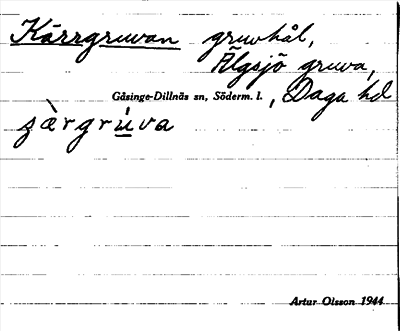 Kärrgruvan gruvhål,
Älgsjö gruva,
Gåsinge-Dillnäs sn, Söderm. l., Daga hd
ʒàrgrúva
Artur Olsson 1944